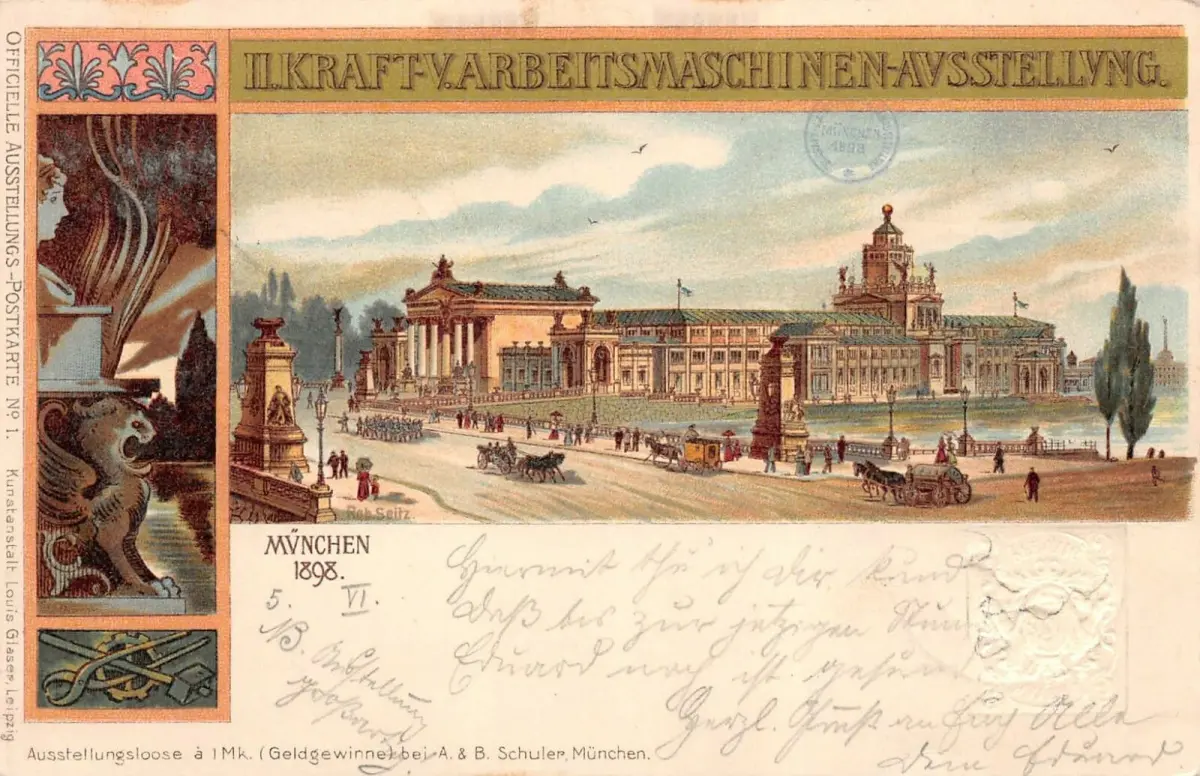 II. KRAFT- V. ARBEITSMASCHINEN-AVSSTELLVNG.
OFFICIELLE AUSSTELLUNGS-POSTKARTE No. 1. Kunstanstalt Louis Glaser, Leipzig
MÜNCHEN
1898
Rob. Seitz.
MVNCHEN
1898.
5. VI.
Hiermit thu ich dir kund
Daß bis zur jetzigen
Eduard noch ist gesund
Herzl. Gruß an Euch Alle
Dein Eduard
NB. Ausstellung
großartig
Ausstellungsloose à 1 Mk. (Geldgewinne) bei A. & B. Schuler, München.